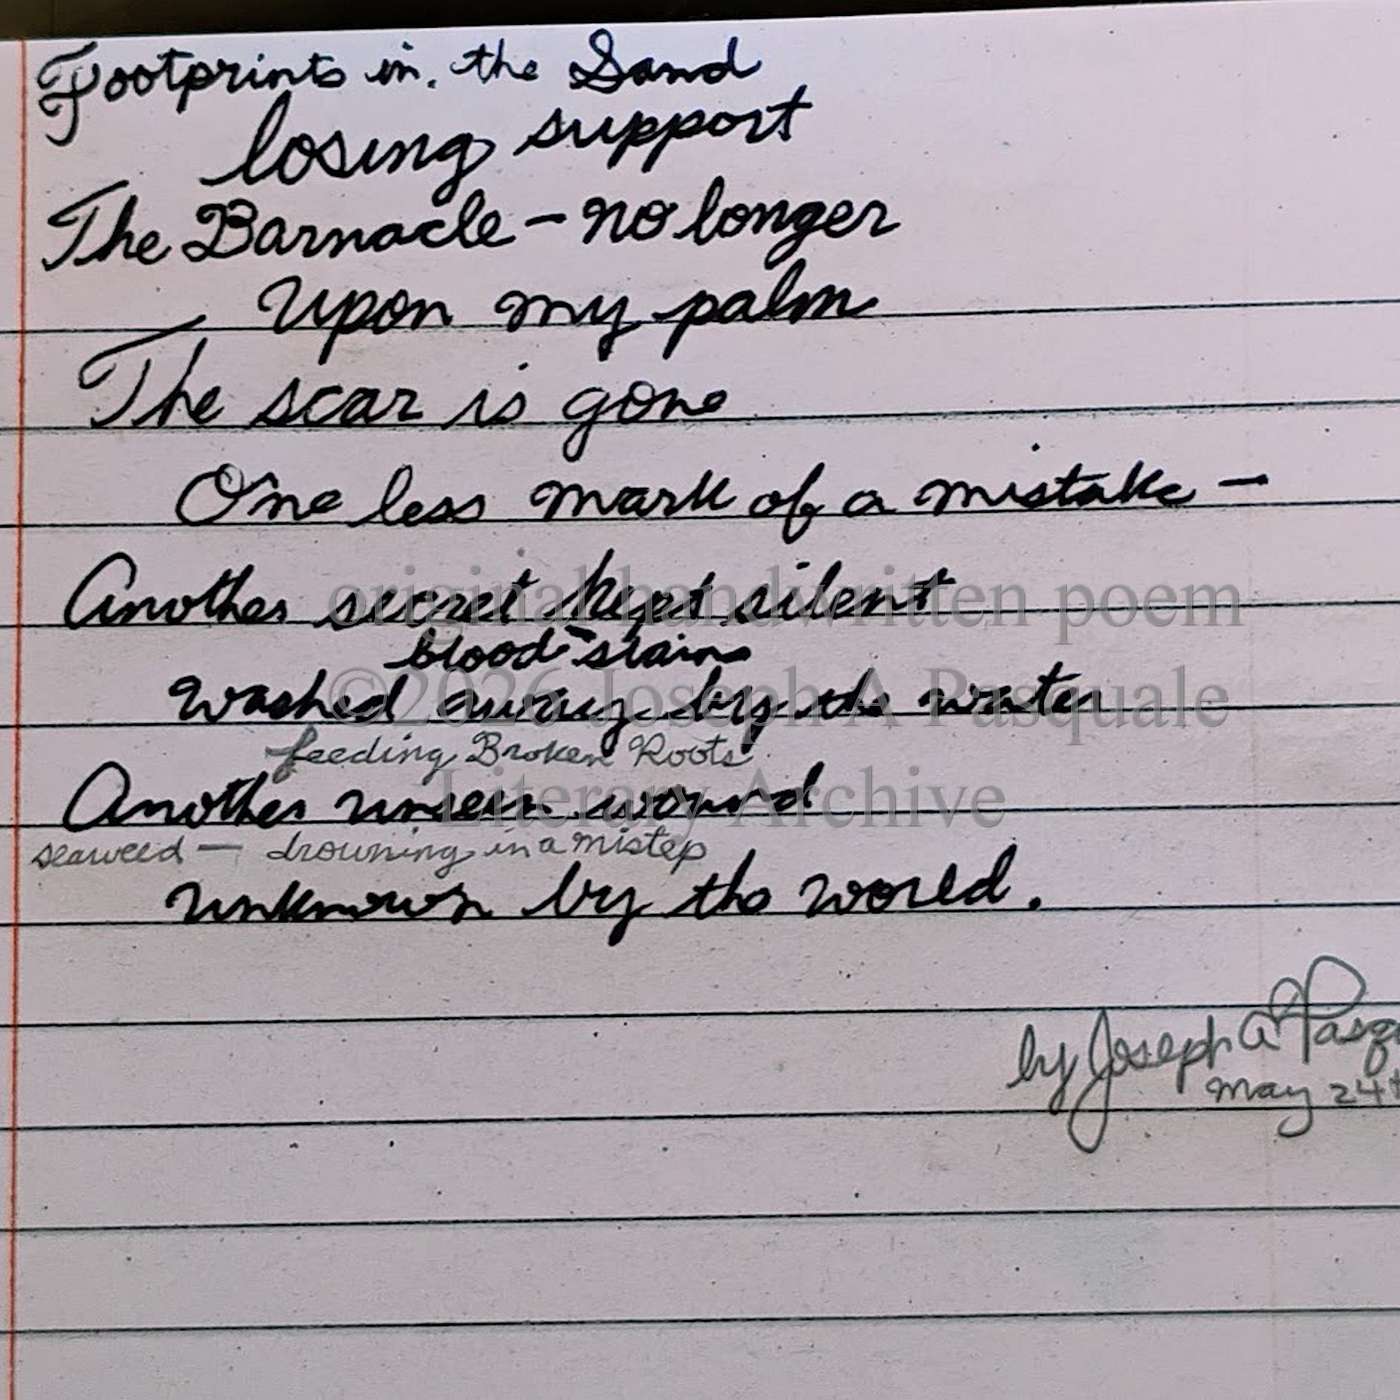 Footprints in. the Sand
losing support
The Barnacle – no longer
upon my palm
The scar is gone
One less mark of a mistake –
Another secret kept silent
original handwritten poem
blood-stains
washed away by the water
©2026 Joseph A Pasquale
feeding Broken Roots
Another unseen wound
Literary Archive
seaweed — drowning in a mistep
unknown by the world.
by Joseph A Pasq
May 24th